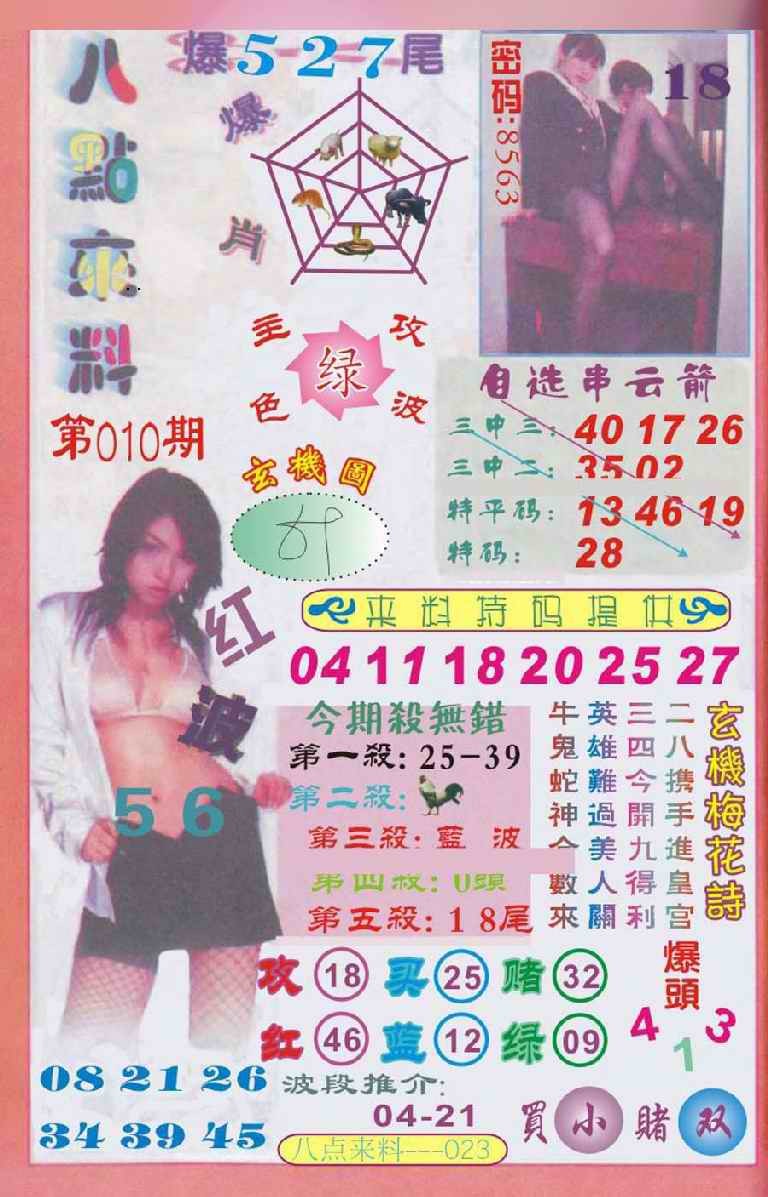 八點來料
爆527尾
爆肖
密码:8563
18
主攻
绿
色波
第010期
玄機圖
自选串云箭
三中三: 40 17 26
三中二: 35 02
特平码: 13 46 19
特码: 28
来料特码提供
04 11 18 20 25 27
红波
56
今期殺無錯
第一殺: 25-39
第二殺:
第三殺: 藍 波
第四殺: 0頭
第五殺: 18尾
玄機梅花詩
二八携手進皇宫
三四今開九得利
英雄難過美人關
牛鬼蛇神合數來
爆頭
4 1 3
攻 18 买 25 赌 32
红 46 蓝 12 绿 09
08 21 26
34 39 45
波段推介:
04-21
買小賭双
八点来料---023